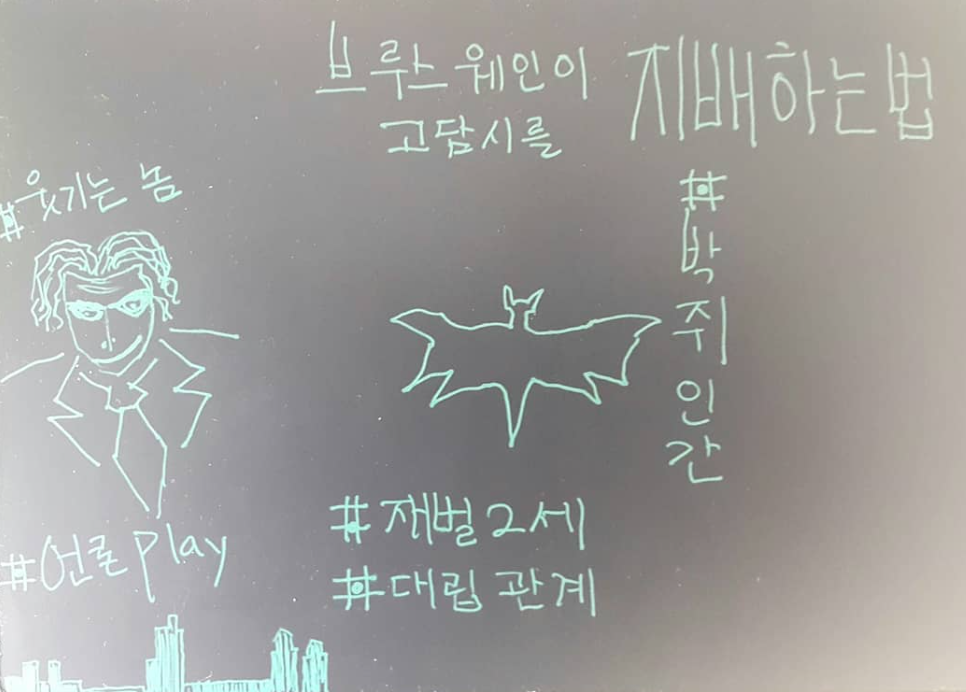 브루스 웨인이
고담시를
지배하는 법
#웃기는 놈
#박쥐인간
#재벌2세
#대립 관계
#언론play